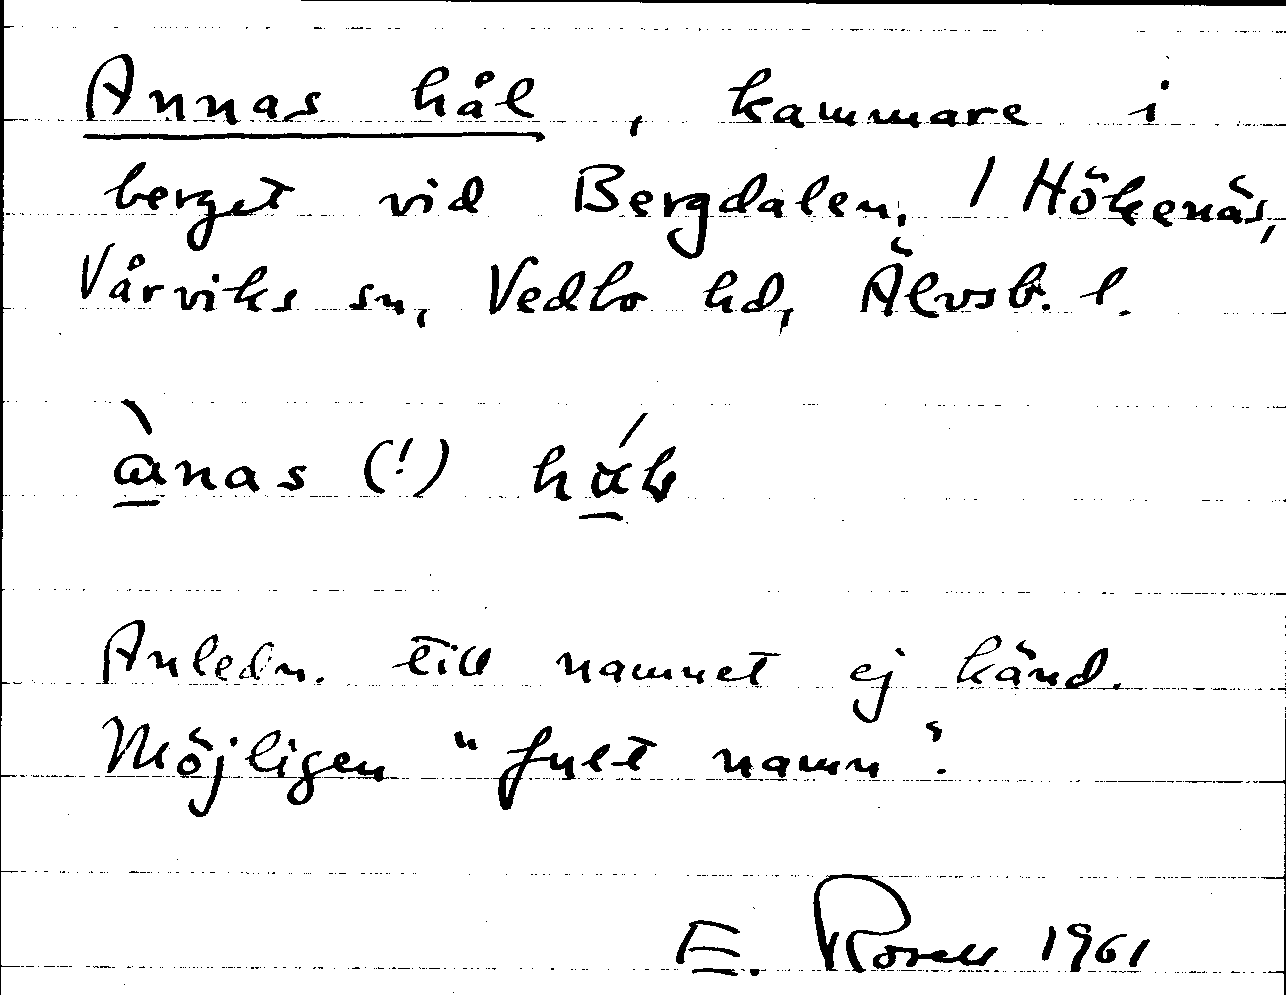 Annas hål, kammare i
berget vid Bergdalen, 1 Hökenäs,
Vårviks sn, Vedbo hd, Älvsb. l.
ànas (!)
Anledn. till namnet ej känd.
Möjligen "fult namn".
E. Rosell 1961